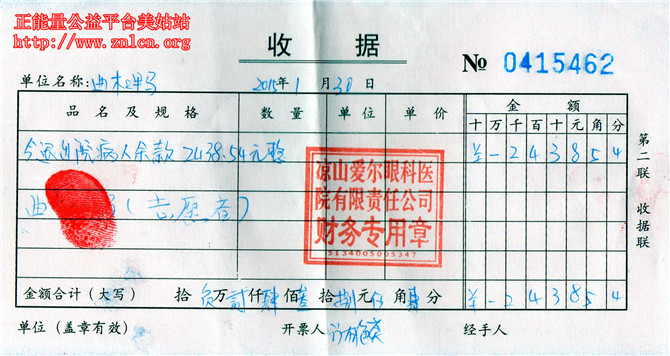 正能量公益平台美姑站
http://www.znlcn.org
收 据
№ 0415462
单位名称:曲木 2015年1月30日
品名及规格 数量 单位 单价 金额
十 万 千 百 十 元 角 分
今退出院病人余款2438.54元整 ¥ - 2 4 3 8 5 4
曲 (志愿者)
凉山爱尔眼科医
院有限责任公司
财务专用章
5134005005347
金额合计(大写) 拾 万 贰仟肆佰叁拾捌元伍角肆分 ¥ - 2 4 3 8 5 4
单位(盖章有效) 开票人 经手人
第二联 收据联